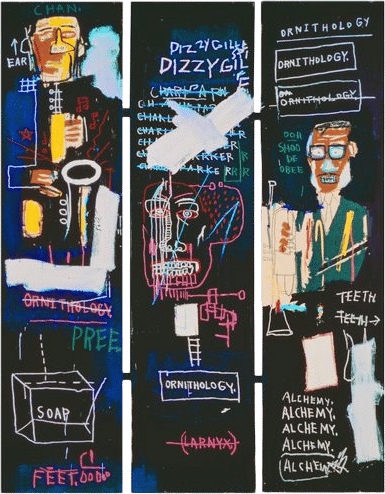 CHAN.
EAR
ORNITHOLOGY
PREE
SOAP
FEET.
DIZZY GILL
DIZZYGIL
CHARLES PA
CH
CHARL
CHARL
CHARL
CHARL
PARKER
PARKER
LARNYX
ORNITHOLOGY.
ORNITHOLOGY
ORNITHOLOGY.
ORNITHOLOGY.
DOH
SHOO
DE
OBEE
TEETH
TEETH→
ALCHEMY.
ALCHEMY.
ALCHEMY.
ALCHEMY.
ALCHEMY